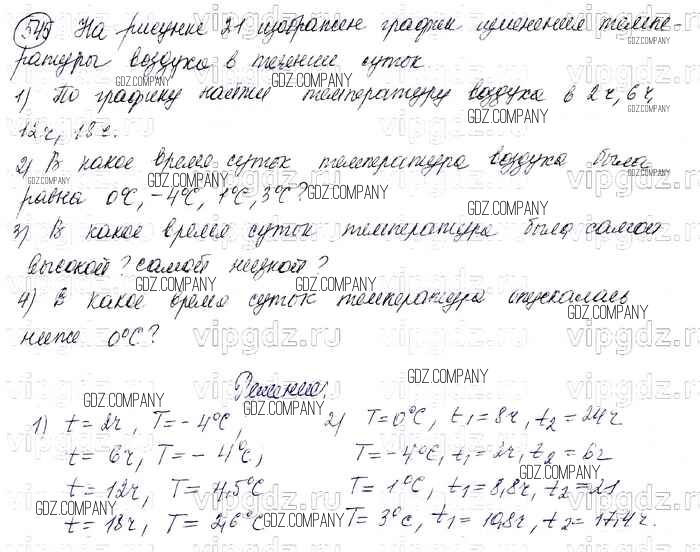 545 На рисунке 21 изображен график изменения темпе-
ратуры воздуха в течении суток
1) По графику найти температуру воздуха в 2ч, 6ч,
12ч, 18ч.
2) В какое время суток температура воздуха была
равна 0°C, -4°C, 1°C, 3°C?
3) В какое время суток температура была самой
высокой? самой низкой?
4) В какое время суток температура опускалась
ниже 0°C?
Решение:
1) t = 2ч, T = -4°C, 2) T = 0°C, t₁ = 8ч, t₂ = 24ч
t = 6ч, T = -4°C, T = -4°C, t₁ = 2ч, t₂ = 6ч
t = 12ч, T = 4,5°C T = 1°C, t₁ = 8,8ч, t₂ = 21
t = 18ч, T = 2,6°C T = 3°C, t₁ = 10,8ч, t₂ = 17,4ч.
GDZ.COMPANY
vipgdz.ru